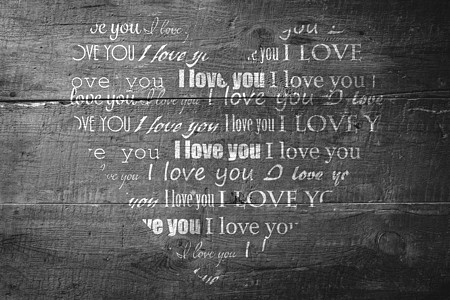 ve you I love
OVE YOU I love yo love you I LOVE
ove you I love you I love you I
love you I love you I love you I love
OVE YOU I love you I love you I LOVE Y
e you I love you I love you
ve you I love you I love yo
you I love you I LOVE YO
ve you I love you
I love you I